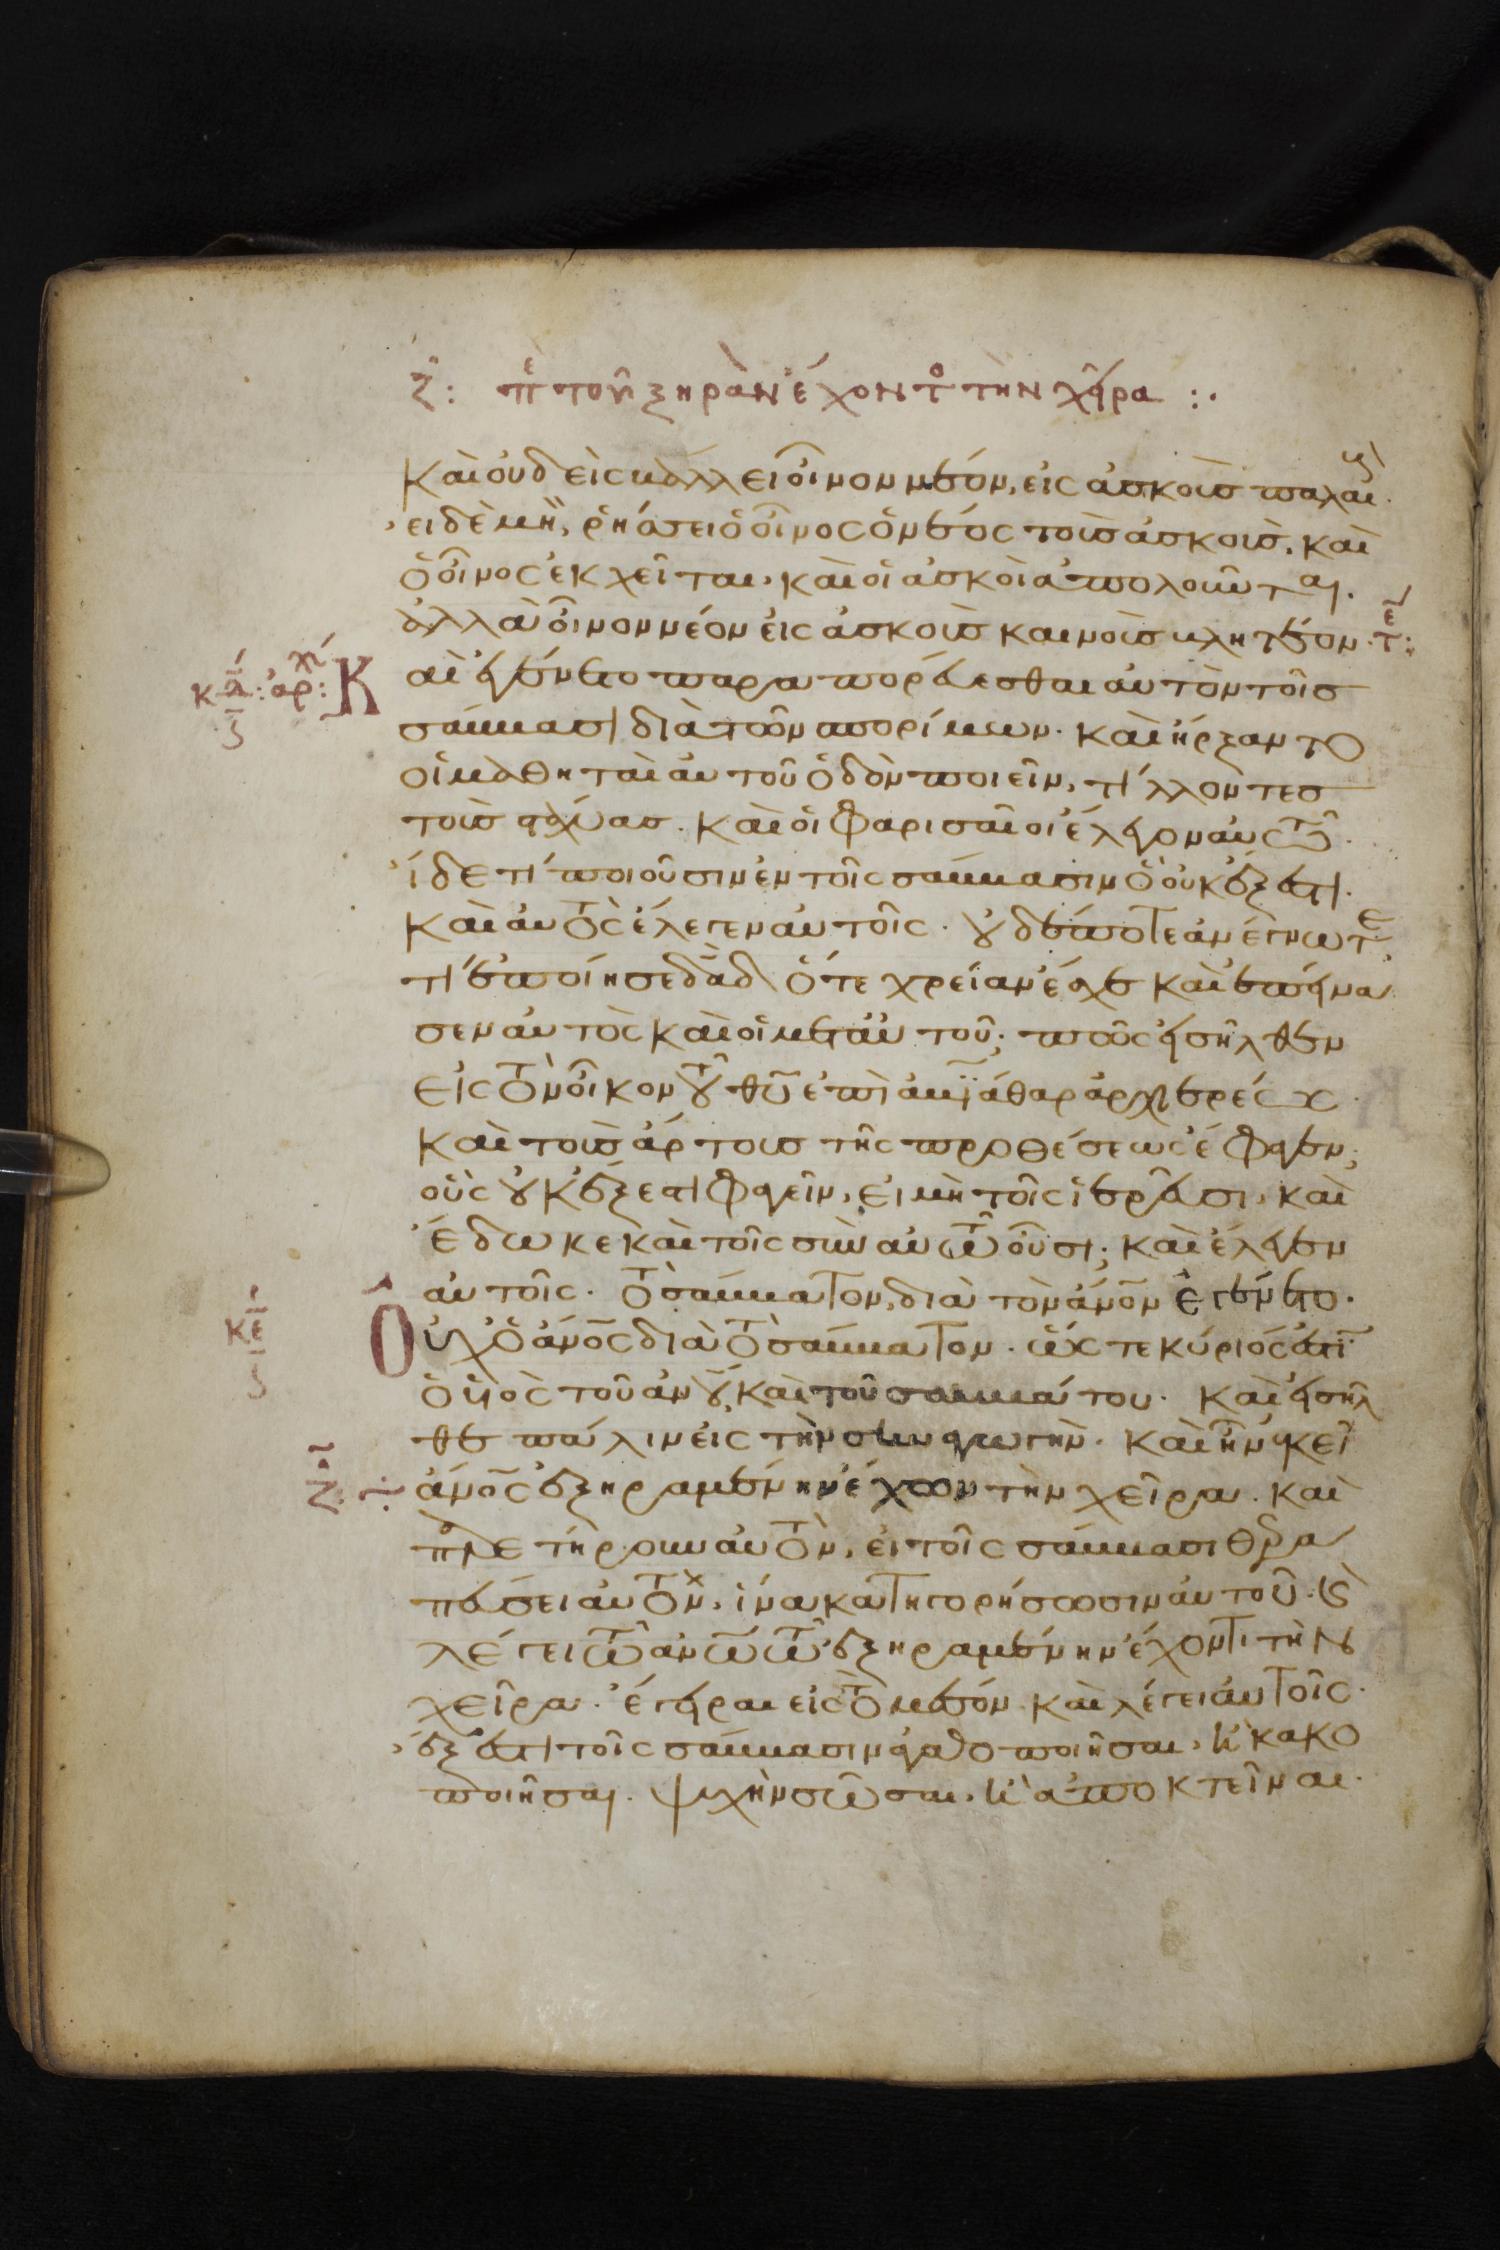 ζ: πε του ξηρὰν ἔχοντο τὴν χεῖρα :·
Καὶ οὐδεὶς βάλλει οἶνον νέον, εἰς ἀσκοὺς παλαιοὺς·
εἰ δὲ μὴ, ῥήσσει ὁ οἶνος ὁ νέος τοὺς ἀσκοὺς. καὶ
ὁ οἶνος ἐκχεῖται, καὶ οἱ ἀσκοὶ ἀπολοῦνται.
ἀλλὰ οἶνον νέον εἰς ἀσκοὺς καινοὺς βλητέον· τε:
κα: ἀρχ: Κ
αὶ ἐγένετο παραπορεύεσθαι αὐτὸν τοῖς
σάββασι διὰ τῶν σπορίμων. καὶ ἤρξαντο
οἱ μαθηταὶ αὐτοῦ ὁδὸν ποιεῖν, τίλλοντες
τοὺς στάχυας. Καὶ οἱ φαρισαῖοι ἔλεγον αὐτῶ·
ἴδε τί ποιοῦσιν ἐν τοῖς σάββασιν ὃ οὐκ ἔξεστι.
Καὶ αὐτὸς ἔλεγεν αὐτοῖς· οὐδέποτε ἀνέγνωτε
τί ἐποίησε δαδ ὅτε χρείαν ἔσχε καὶ ἐπείνα
σεν αὐτὸς καὶ οἱ μετ' αὐτοῦ; πῶς εἰσῆλθεν
εἰς τὸν οἶκον τοῦ θυ ἐπὶ ἀβιάθαρ ἀρχιερέως
καὶ τοὺς ἄρτους τῆς προθέσεως ἔφαγεν;
οὓς οὐκ ἔξεστι φαγεῖν, εἰ μὴ τοῖς ἱερεῦσι, καὶ
ἔδωκε καὶ τοῖς σὺν αὐτῶ οὖσι; καὶ ἔλεγεν
αὐτοῖς. τὸ σάββατον, διὰ τὸν ἄνον ἐγένετο.
κε Οὐχ ὁ ἄνος διὰ τὸ σάββατον. ὥστε κύριός ἐστι
ὁ υἱὸς τοῦ ἀνου, καὶ τοῦ σαββάτου. Καὶ εἰσῆλ
θε πάλιν εἰς τὴν συναγωγὴν. καὶ ἦν ἐκεῖ
ζ ἄνος ἐξηραμένην ἔχων τὴν χεῖρα. καὶ
παρετήρουν αὐτὸν, εἰ τοῖς σάββασι θερα
πεύσει αὐτὸν, ἵνα κατηγορήσωσιν αὐτοῦ. καὶ
λέγει τῶ ἀνω τῶ ἐξηραμένην ἔχοντι τὴν
χεῖρα· ἔγειραι εἰς τὸ μέσον. καὶ λέγει αὐτοῖς·
ἔξεστι τοῖς σάββασιν ἀγαθοποιῆσαι, ἢ κακο
ποιῆσαι. ψυχὴν σῶσαι, ἢ ἀποκτεῖναι.